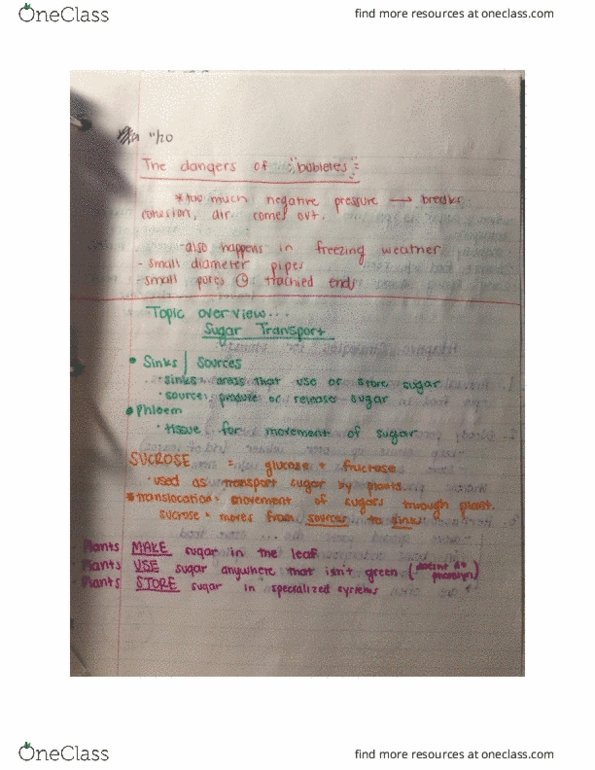 OneClass
find more resources at oneclass.com
11/20
The dangers of "bubbletes"
*too much negative pressure → breaks
cohesion, air comes out.
-also happens in freezing weather
- small diameter pipes
- small pores @ trachied ends
Topic overview...
Sugar Transport
• Sinks / Sources
- sinks: areas that use or store sugar
• source: produce or release sugar
• Phloem
• tissue for movement of sugar
SUCROSE = glucose + fructose
• used as transport sugar by plants.
*translocation: movement of sugars through plant.
sucrose • moves from sources to sinks
- Plants MAKE sugar in the leaf
- Plants USE sugar anywhere that isn't green (doesn't do
- Plants STORE sugar in specialized systems
OneClass
find more resources at oneclass.com